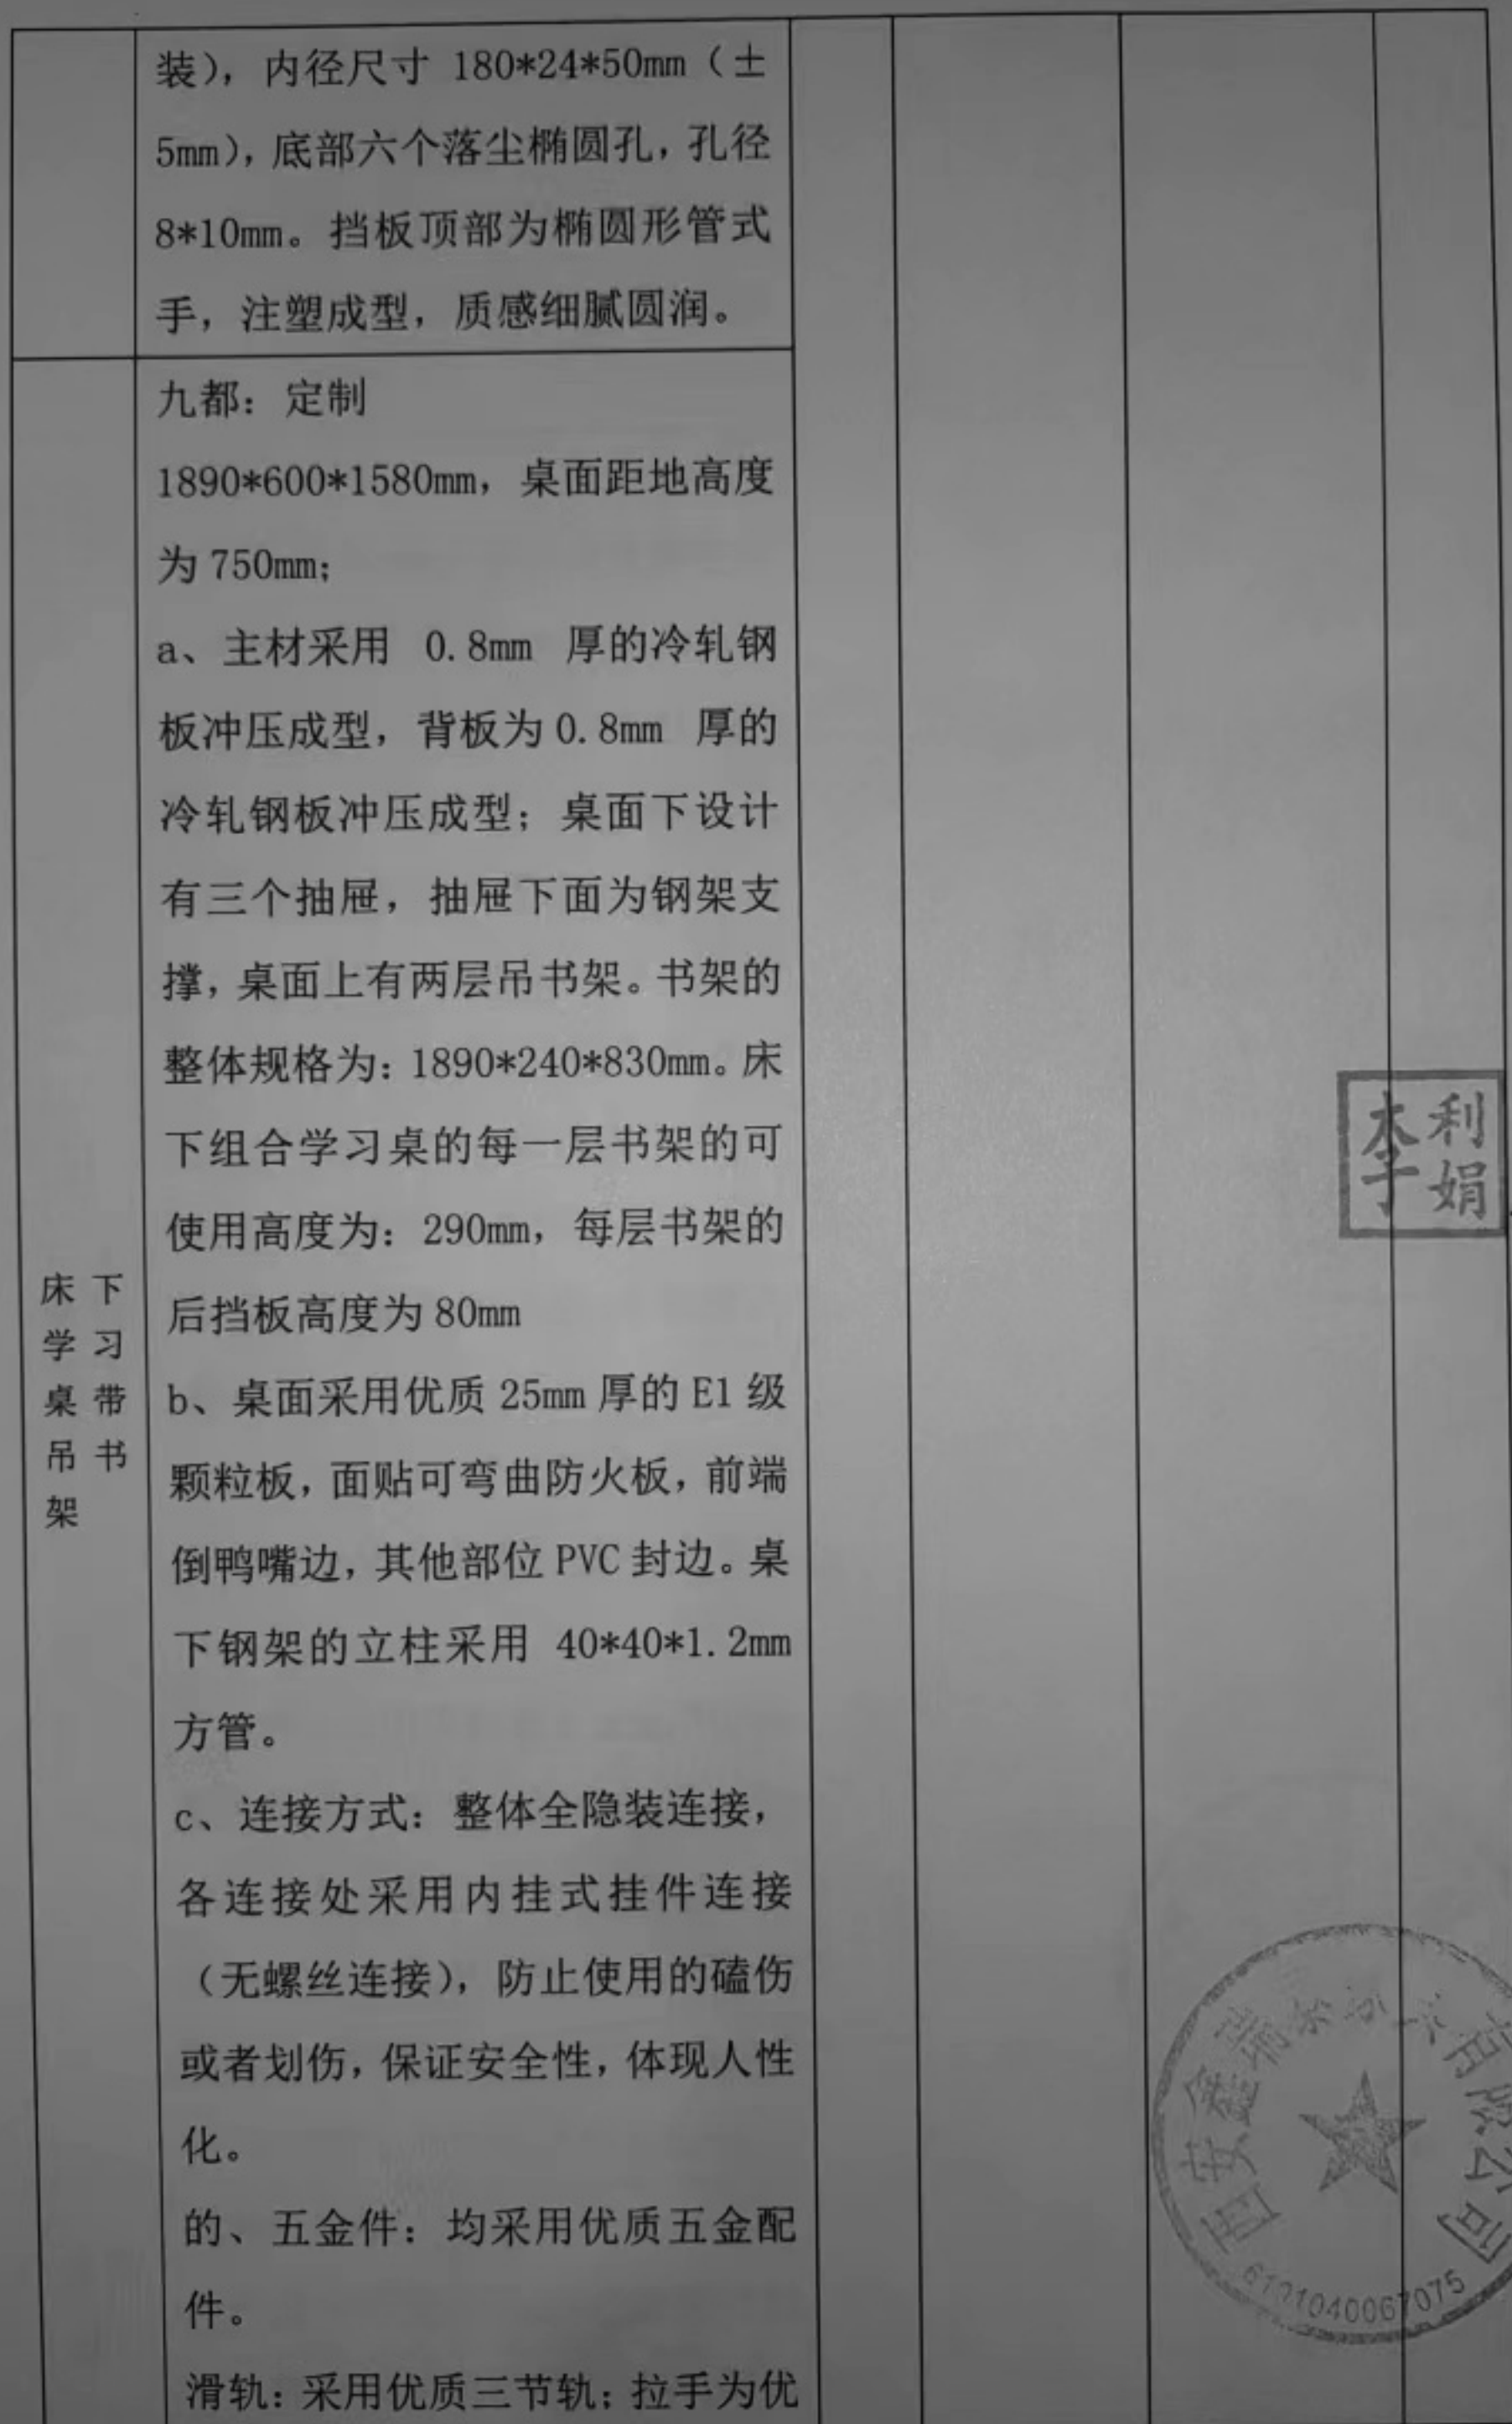 装)，内径尺寸 180*24*50mm（±
5mm)，底部六个落尘椭圆孔，孔径
8*10mm。挡板顶部为椭圆形管式
手，注塑成型，质感细腻圆润。
床下
学习
桌带
吊书
架
九都：定制
1890*600*1580mm，桌面距地高度
为 750mm；
a、主材采用 0.8mm 厚的冷轧钢
板冲压成型，背板为 0.8mm 厚的
冷轧钢板冲压成型；桌面下设计
有三个抽屉，抽屉下面为钢架支
撑，桌面上有两层吊书架。书架的
整体规格为：1890*240*830mm。床
下组合学习桌的每一层书架的可
使用高度为：290mm，每层书架的
后挡板高度为 80mm
b、桌面采用优质 25mm 厚的 E1 级
颗粒板，面贴可弯曲防火板，前端
倒鸭嘴边，其他部位 PVC 封边。桌
下钢架的立柱采用 40*40*1.2mm
方管。
c、连接方式：整体全隐装连接，
各连接处采用内挂式挂件连接
（无螺丝连接)，防止使用的磕伤
或者划伤，保证安全性，体现人性
化。
的、五金件：均采用优质五金配
件。
滑轨：采用优质三节轨；拉手为优
李利娟
西安鑫瑞 有限公司
6101040067075